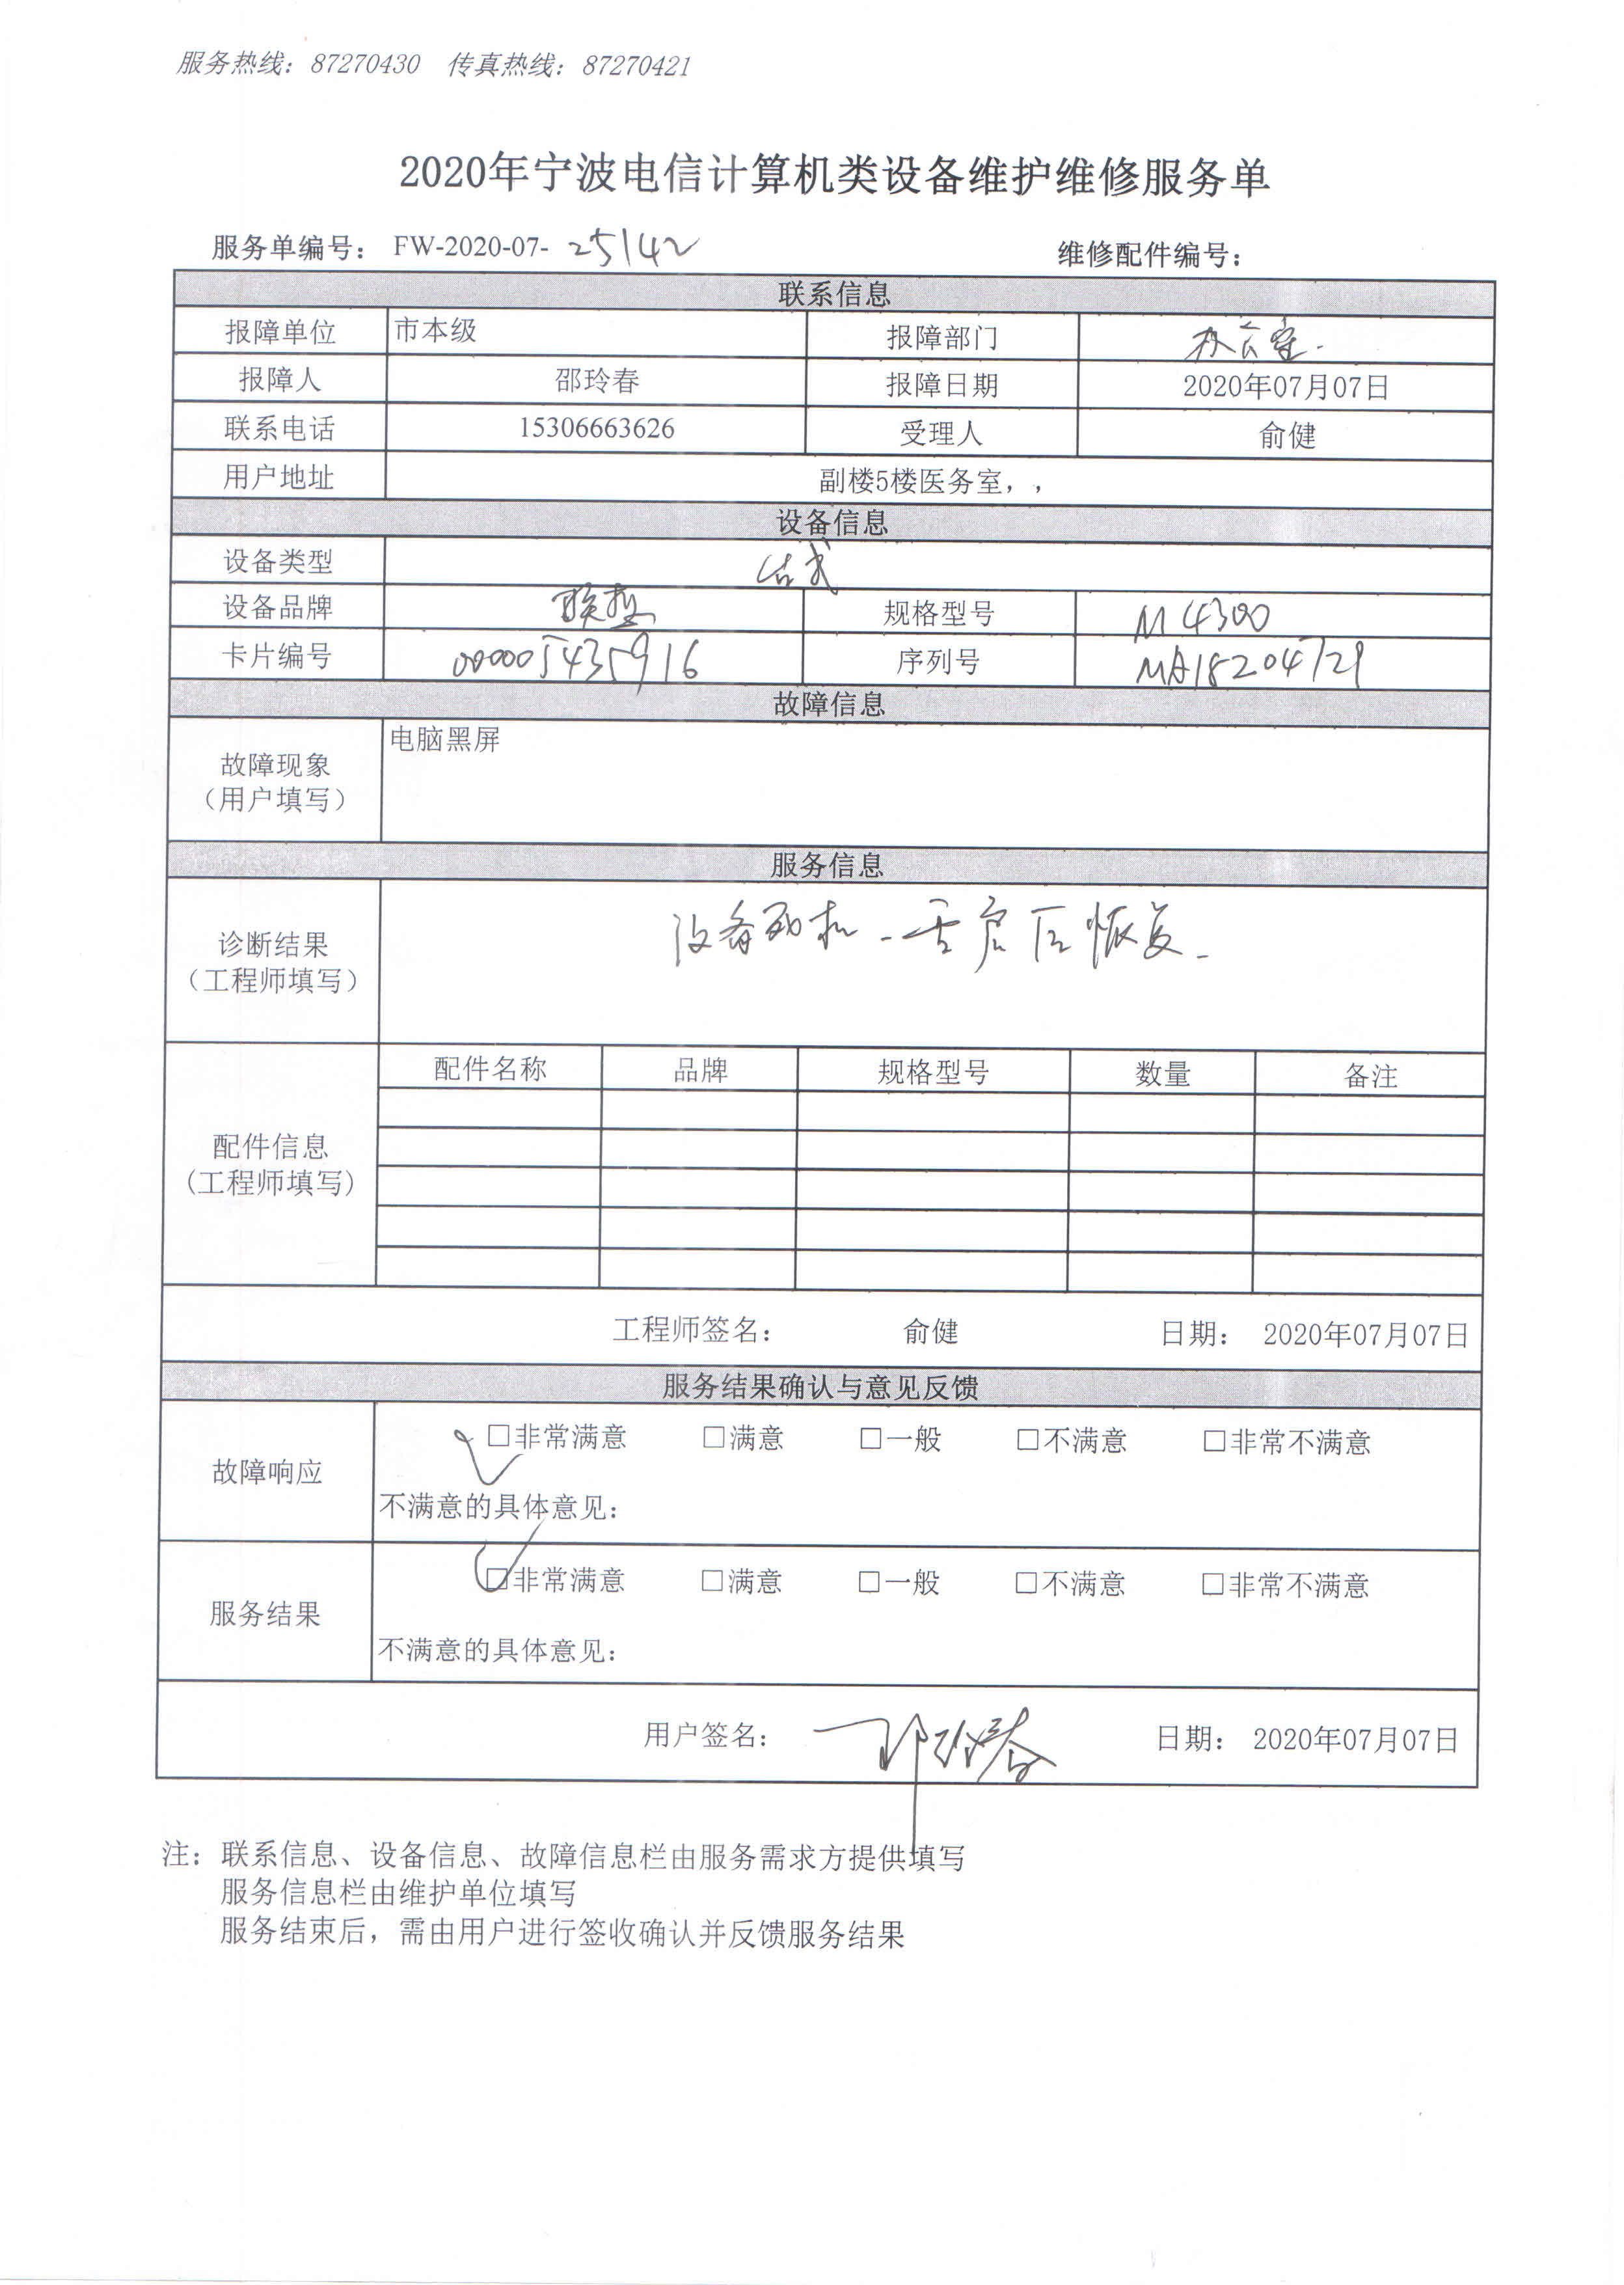 服务热线：87270430 传真热线：87270421
2020年宁波电信计算机类设备维护维修服务单
服务单编号： FW-2020-07- 25142 维修配件编号：
联系信息
报障单位 市本级 报障部门 办公室.
报障人 邵玲春 报障日期 2020年07月07日
联系电话 15306663626 受理人 俞健
用户地址 副楼5楼医务室，，
设备信息
设备类型
设备品牌 联想 规格型号 M4300
卡片编号 000005435916 序列号 MA18204721
故障信息
故障现象 电脑黑屏
（用户填写）
服务信息
诊断结果 设备死机. 重启后恢复.
（工程师填写）
配件信息 配件名称 品牌 规格型号 数量 备注
(工程师填写)
工程师签名： 俞健 日期： 2020年07月07日
服务结果确认与意见反馈
故障响应 □非常满意 □满意 □一般 □不满意 □非常不满意
不满意的具体意见：
服务结果 □非常满意 □满意 □一般 □不满意 □非常不满意
不满意的具体意见：
用户签名： 邵玲春 日期： 2020年07月07日
注：联系信息、设备信息、故障信息栏由服务需求方提供填写
服务信息栏由维护单位填写
服务结束后，需由用户进行签收确认并反馈服务结果